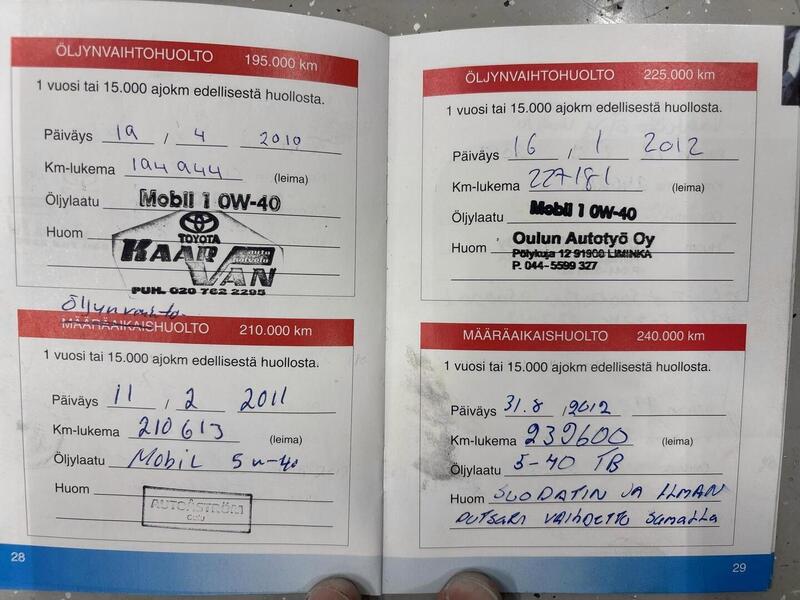 ÖLJYNVAIHTOHUOLTO 195.000 km
1 vuosi tai 15.000 ajokm edellisestä huollosta.
Päiväys 19 / 4 2010
Km-lukema 194944 (leima)
Öljylaatu Mobil 1 0W-40
Huom
TOYOTA
KAARAVAN
PUH. 020 762 2295
Öljynvaihto
MÄÄRÄAIKAISHUOLTO 210.000 km
1 vuosi tai 15.000 ajokm edellisestä huollosta.
Päiväys 11 / 2 2011
Km-lukema 210613 (leima)
Öljylaatu Mobil 5w-40
Huom
AUTOÅSTRÖM
OULU
28
ÖLJYNVAIHTOHUOLTO 225.000 km
1 vuosi tai 15.000 ajokm edellisestä huollosta.
Päiväys 16 / 1 2012
Km-lukema 227181 (leima)
Öljylaatu Mobil 1 0W-40
Huom Oulun Autotyö Oy
Pölykuja 12 91900 LIMINKA
P. 044-5599 327
MÄÄRÄAIKAISHUOLTO 240.000 km
1 vuosi tai 15.000 ajokm edellisestä huollosta.
Päiväys 31.8 / 2012
Km-lukema 239600 (leima)
Öljylaatu 5-40 TB
Huom SUODATIN JA ILMAN
PUTSARI VAIHDETTU SAMALLA
29